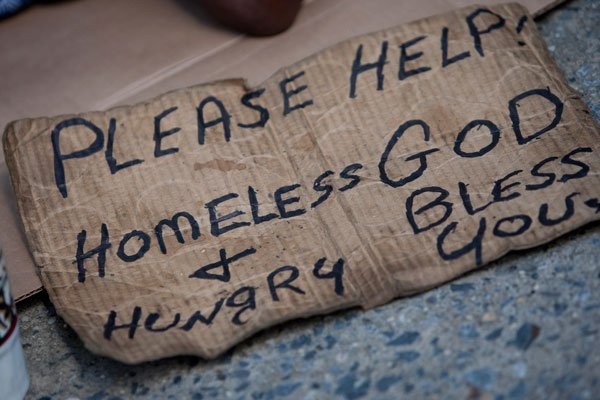 PLEASE HELP!
HOMELESS
&
HUNGRY
GOD
BLESS
YOU.